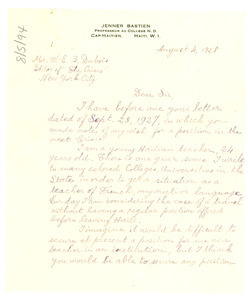 JENNER BASTIEN
PROFESSEUR AU COLLEGE N. D.
CAP-HAITIEN, HAITI, W. I.
August 4, 1928
Mr. W. E. B. Dubois
Editor of "The Crisis"
New York City
Dear Sir,
I have before me your letter
dated of Sept. 28, 1927, in which you
made note of my wish for a position in the
next Crisis.
I am a young Haitian teacher, 24
years old. There is one year since I write
to many colored Colleges, Universities in the
States in order to get a situation as a
teacher of French, my native language.
To-day I am considering the case of a travel
without having a regular position offered
before leaving Haiti.
I imagine it would be difficult to
secure at present a position for me as a
teacher in an institution, but I think
you would be able to secure any position
8/5/94